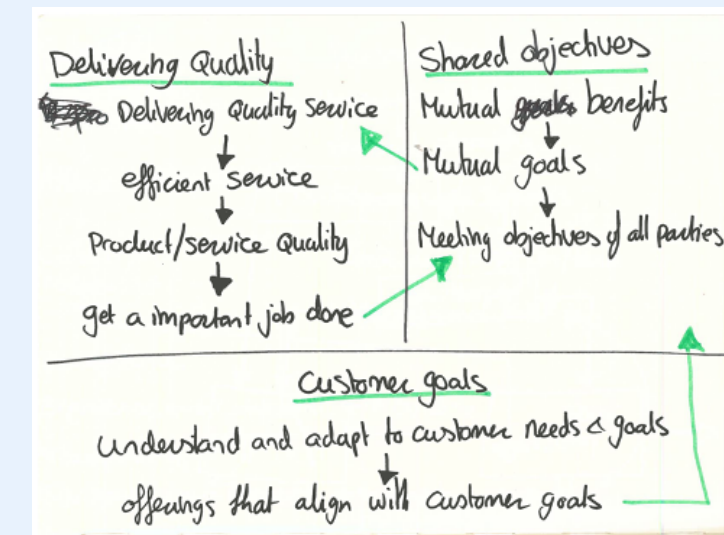 Delivering Quality
Delivering Quality Service
efficient service
Product/service Quality
get a important job done
Shared objectives
Mutual benefits
Mutual goals
Meeting objectives of all parties
Customer goals
understand and adapt to customer needs & goals
offerings that align with customer goals